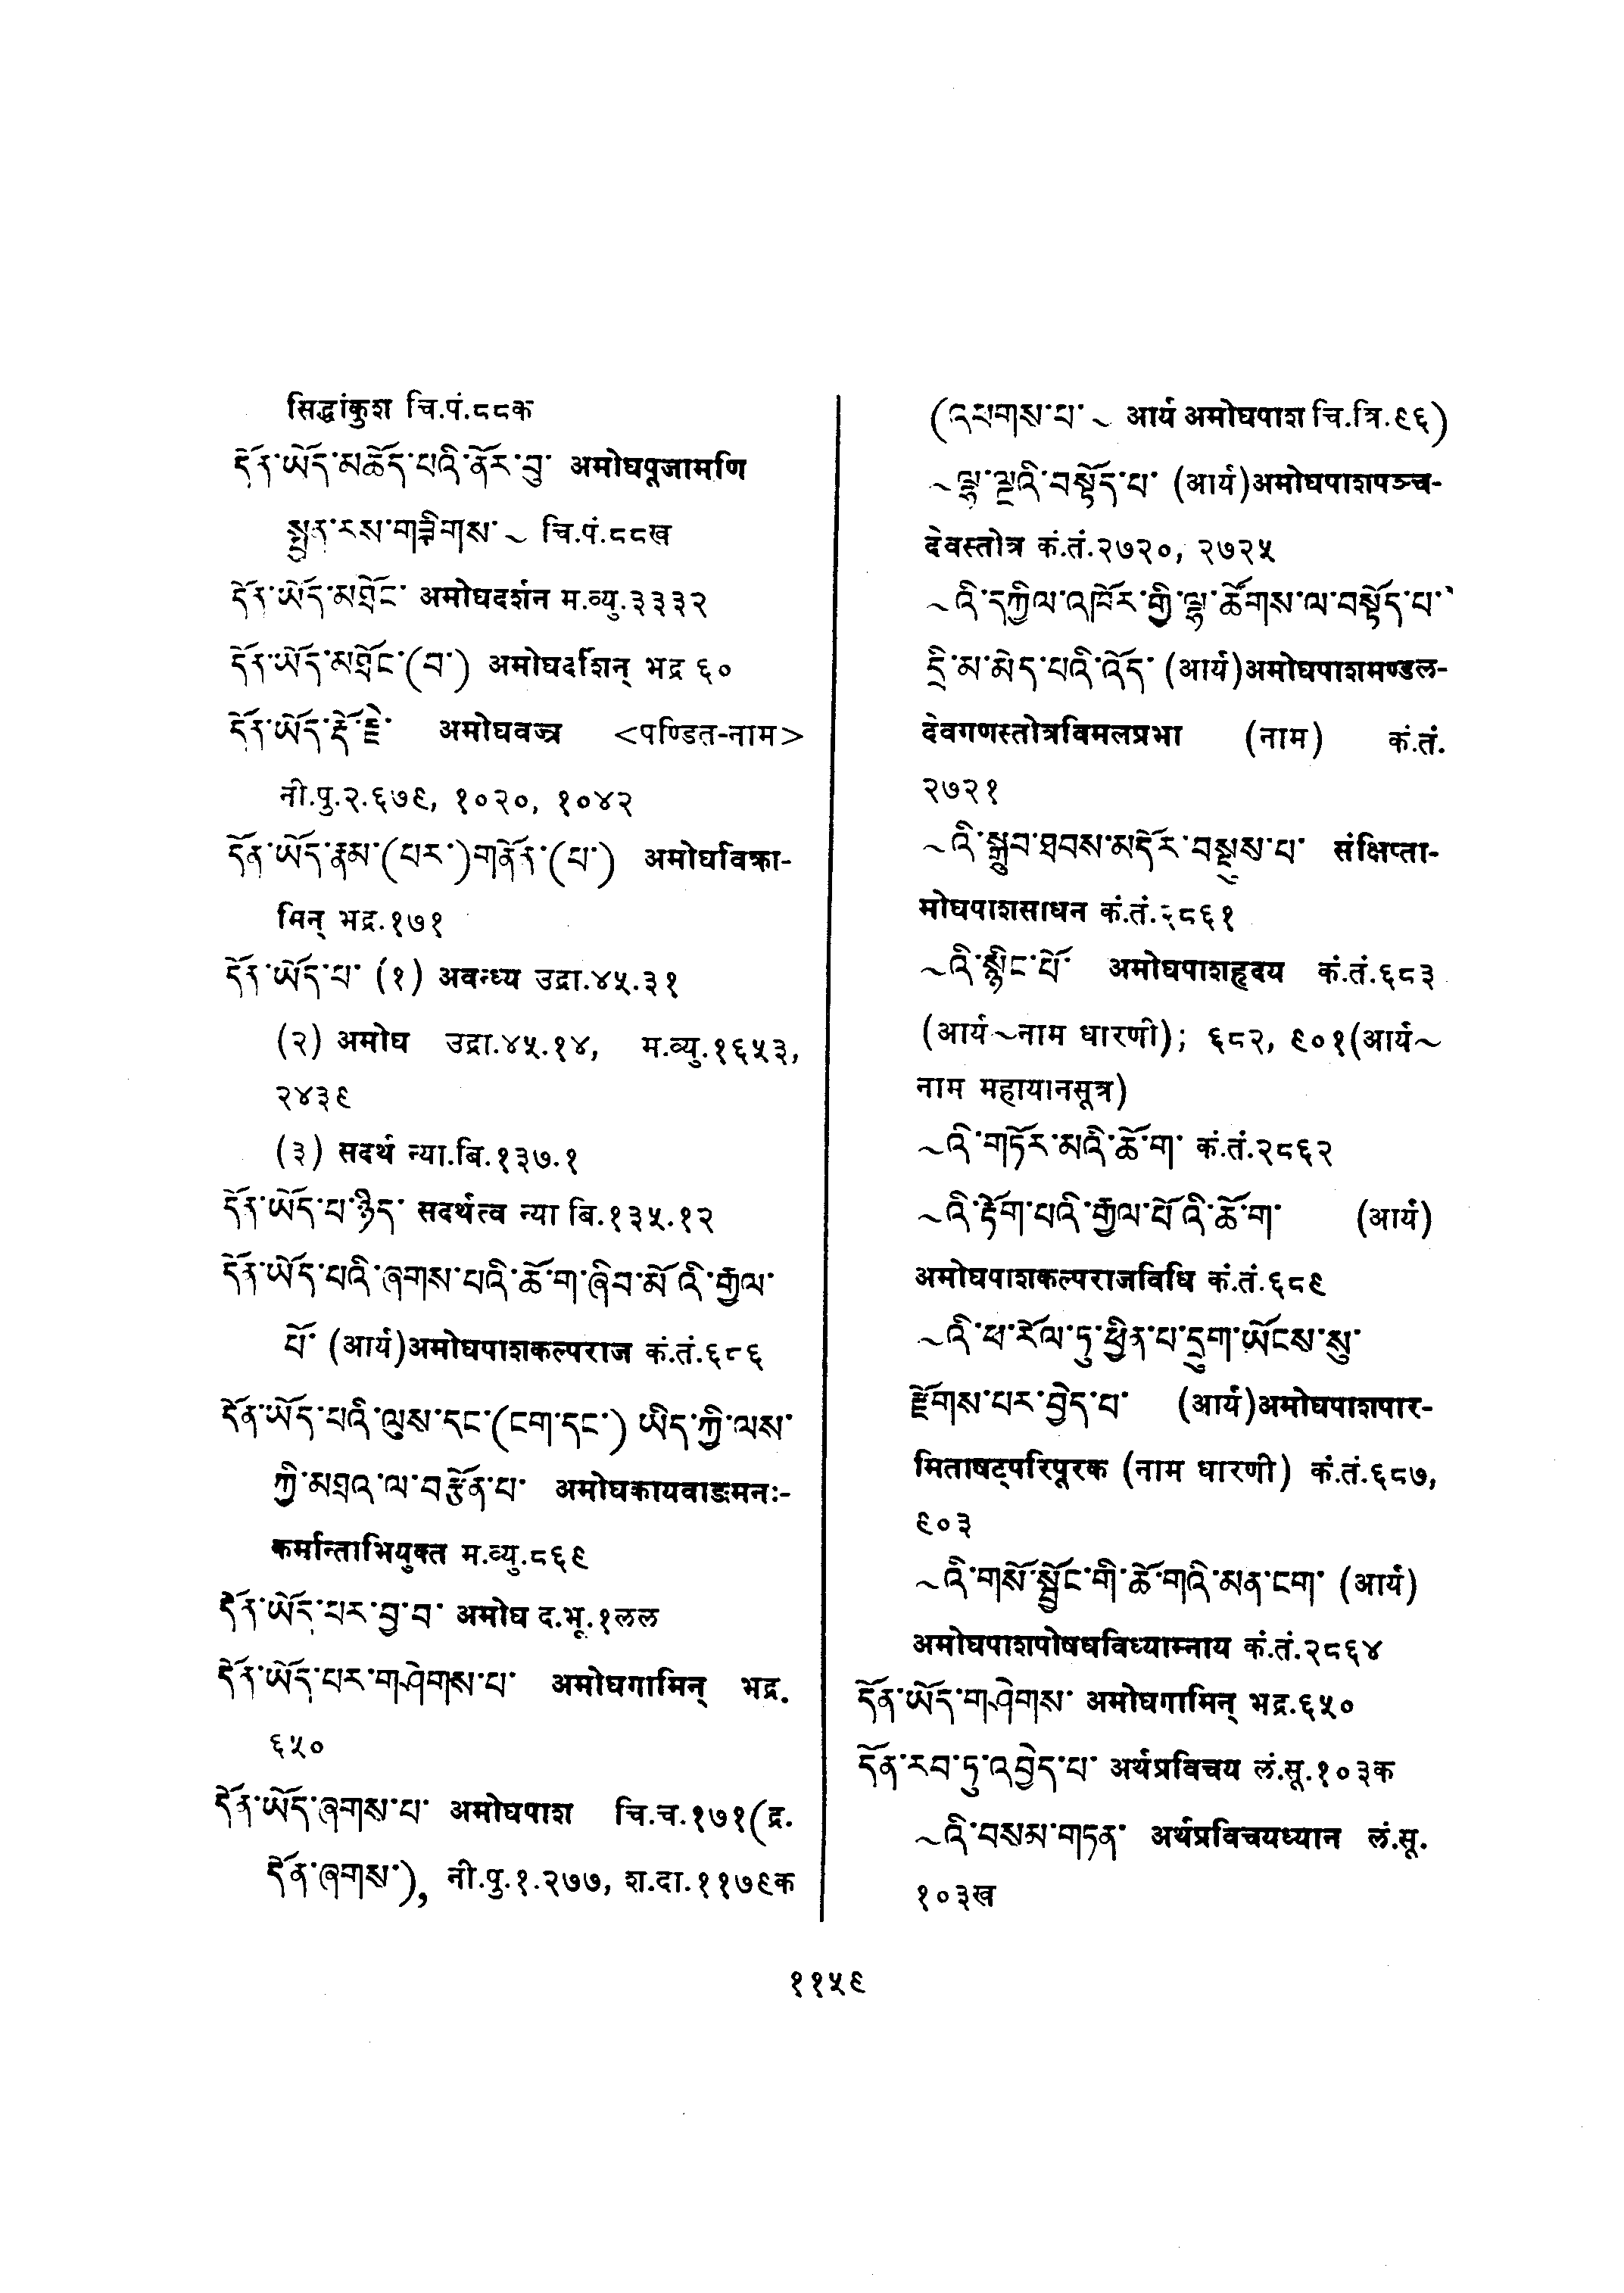 सिद्धांकुश चि.पं.८८क
དོན་ཡོད་མཆོད་པའི་ནོར་བུ་ अमोघपूजामणि
སྤྱན་རས་གཟིགས་~ चि.पं.८८ख
དོན་ཡོད་མཐོང་ अमोघदर्शन म.व्यु.३३३२
དོན་ཡོད་མཐོང་(བ་) अमोघदर्शिन् भद्र ६०
དོན་ཡོད་རྡོ་རྗེ་ अमोघवज्र <पण्डित-नाम>
नी.पु.२.६७९, १०२०, १०४२
དོན་ཡོད་རྣམ་(པར་)གནོན་(པ་) अमोघविक्रा-
मिन् भद्र.१७१
དོན་ཡོད་པ་ (१) अवन्ध्य उद्रा.४५.३१
(२) अमोघ उद्रा.४५.१४, म.व्यु.१६५३,
२४३९
(३) सदर्थ न्या.बि.१३७.१
དོན་ཡོད་པ་ཉིད་ सदर्थत्व न्या बि.१३५.१२
དོན་ཡོད་པའི་ཞགས་པའི་ཆོ་ག་ཞིབ་མོའི་རྒྱལ་
པོ་ (आर्य)अमोघपाशकल्पराज कं.तं.६८६
དོན་ཡོད་པའི་ལུས་དང་(ངག་དང་) ཡིད་ཀྱི་ལས་
ཀྱི་མཐའ་ལ་བརྩོན་པ་ अमोघकायवाङमनः-
कर्मान्ताभियुक्त म.व्यु.८६९
དོན་ཡོད་པར་བྱ་བ་ अमोघ द.भू.१लल
དོན་ཡོད་པར་གཤེགས་པ་ अमोघगामिन् भद्र.
६५०
དོན་ཡོད་ཞགས་པ་ अमोघपाश चि.च.१७१(द्र.
དོན་ཞགས་), नी.पु.१.२७७, श.दा.११७९क
(འཕགས་པ་~ आर्य अमोघपाश चि.त्रि.९६)
~ལྷ་ལྔའི་བསྟོད་པ་ (आर्य)अमोघपाशपञ्च-
देवस्तोत्र कं.तं.२७२०, २७२५
~འི་དཀྱིལ་འཁོར་གྱི་ལྷ་ཚོགས་ལ་བསྟོད་པ་
དྲི་མ་མེད་པའི་འོད་ (आर्य)अमोघपाशमण्डल-
देवगणस्तोत्रविमलप्रभा (नाम) कं.तं.
२७२१
~འི་སྒྲུབ་ཐབས་མདོར་བསྡུས་པ་ संक्षिप्ता-
मोघपाशसाधन कं.तं.२८६१
~འི་སྙིང་པོ་ अमोघपाशहृदय कं.तं.६८३
(आर्य~नाम धारणी); ६८२, ९०१(आर्य~
नाम महायानसूत्र)
~འི་གཏོར་མའི་ཆོ་ག་ कं.तं.२८६२
~འི་རྟོག་པའི་རྒྱལ་པོའི་ཆོ་ག་ (आर्य)
अमोघपाशकल्पराजविधि कं.तं.६८९
~འི་ཕ་རོལ་ཏུ་ཕྱིན་པ་དྲུག་ཡོངས་སུ་
རྫོགས་པར་བྱེད་པ་ (आर्य)अमोघपाशपार-
मिताषट्परिपूरक (नाम धारणी) कं.तं.६८७,
९०३
~འི་གསོ་སྦྱོང་གི་ཆོ་གའི་མན་ངག་ (आर्य)
अमोघपाशपोषधविध्याम्नाय कं.तं.२८६४
དོན་ཡོད་གཤེགས་ अमोघगामिन् भद्र.६५०
དོན་རབ་ཏུ་འབྱེད་པ་ अर्थप्रविचय लं.सू.१०३क
~འི་བསམ་གཏན་ अर्थप्रविचयध्यान लं.सू.
१०३ख
११५९